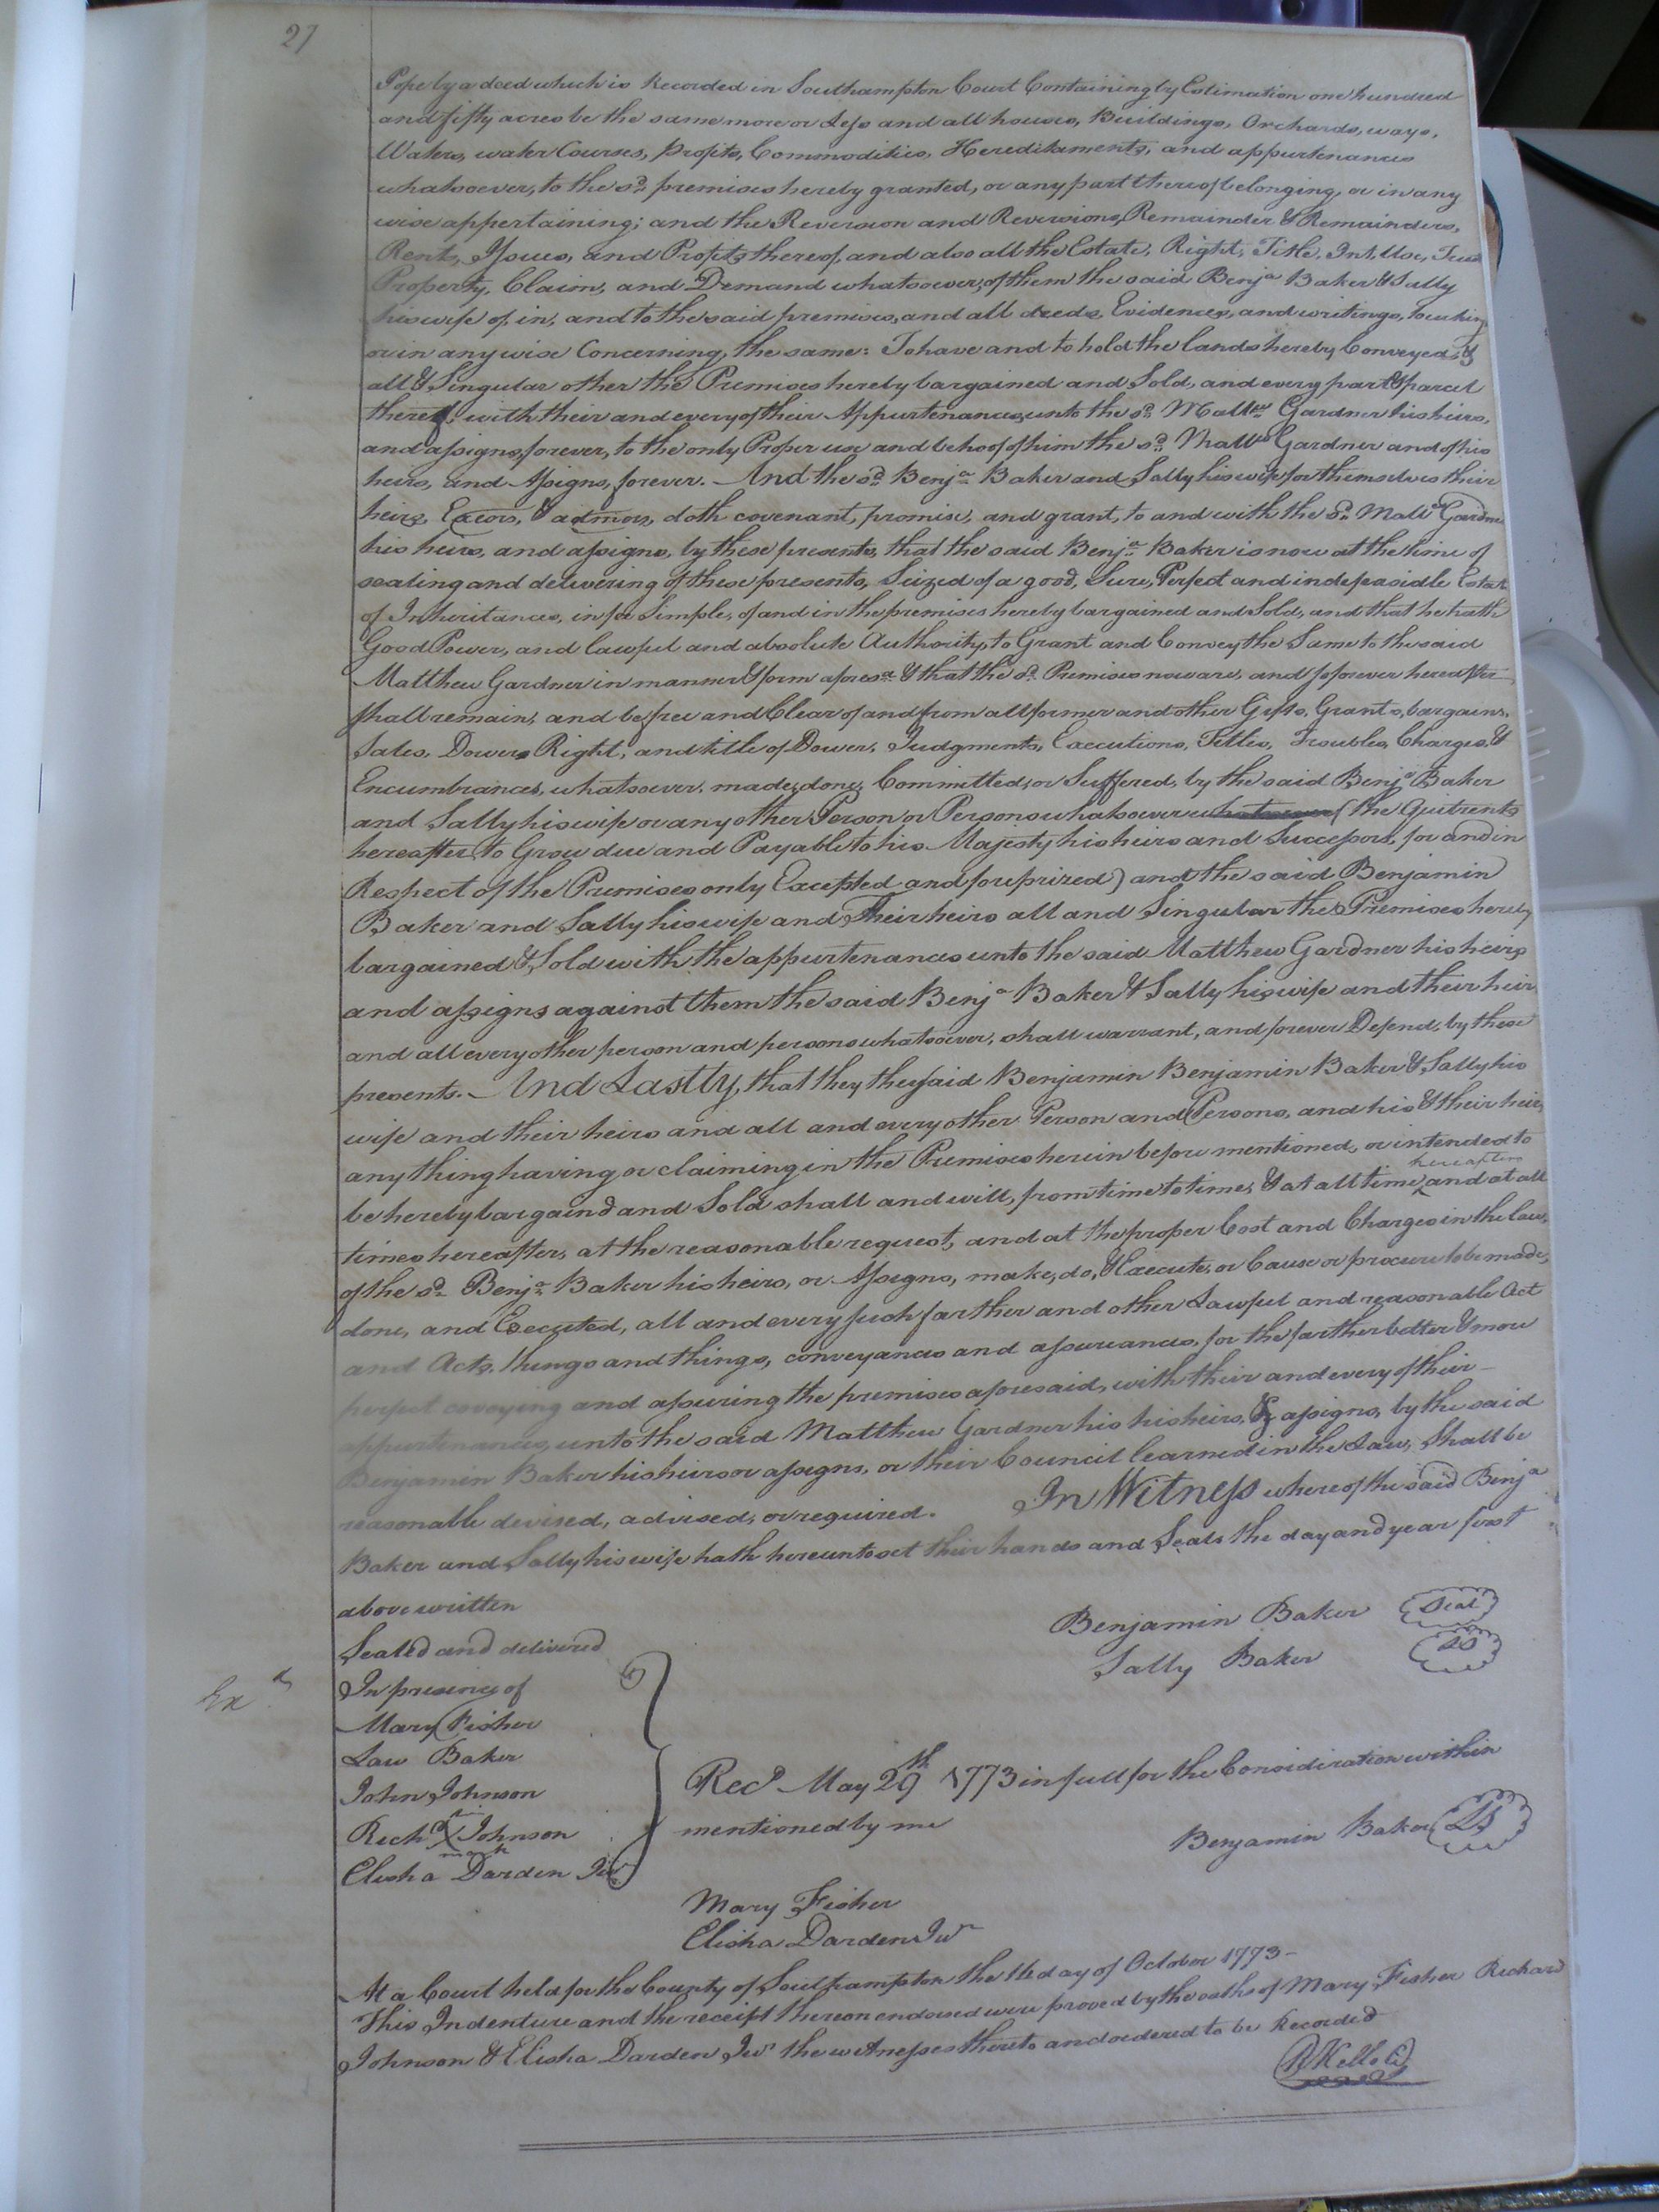 27
Pope by a deed which is Recorded in Southampton Court Containing by Estimation one hundred
and fifty acres be the same more or Less and all houses, Buildings, Orchards, ways,
Waters, water Courses, Profits, Commodities, Hereditaments, and appurtenances
whatsoever, to the sd. premises hereby granted, or any part thereof belonging, or in any
wise appertaining; and the Reversion and Reversions, Remainder & Remainders,
Rents, Issues, and Profits thereof, and also all the Estate, Right, Title, Int, Use, Trust
Property, Claim, and Demand whatsoever, of them the said Benja Baker & Sally
his wife of, in, and to the said premises, and all deeds, Evidences, and writings, touching
or in any wise Concerning, the same: To have and to hold the lands hereby Conveyed, &
all & Singular other the Premises hereby bargained and Sold, and every part & parcel
thereof, with their and every of their Appurtenances, unto the sd. Mattw Gardner his heirs,
and assigns, forever, to the only Proper use and behoof of him the sd. Mattw Gardner and of his
heirs, and Assigns, forever. And the sd. Benja Baker and Sally his wife for themselves their
heirs, Execors, & admors, doth covenant, promise, and grant, to and with the sd. Mattw Gardner
his heirs, and assigns, by these presents, that the said Benja. Baker is now at the time of
sealing and delivering of these presents, Seized of a good, Sure, Perfect and indefeasidle Estate
of Inheritances, in fee Simple, of and in the premises hereby bargained and Sold, and that he hath
Good Power, and lawful and absolute Authority, to Grant and Convey the Same to the said
Matthew Gardner in manner & form aforesd. & that the sd. Premises now are, and so forever hereafter
shall remain, and be free and Clear of and from all former and other Gifts, Grants, bargains,
Sales, Dowers Right, and title of Dower, Judgments, Executions, Titles, Troubles, Charges, &
Encumbrances, whatsoever, made, done, Committed, or Suffered, by the said Benja Baker
and Sally his wife or any other Person or Persons whatsoever whatsoever (the Quitrents
hereafter to Grow due and Payable to his Majesty his heirs and Successors, for and in
Respect of the Premises only Excepted and foreprized) and the said Benjamin
Baker and Sally his wife and Their heirs all and Singular the Premises hereby
bargained & Sold with the appurtenances unto the said Matthew Gardner his heirs
and assigns against them the said Benja Baker & Sally his wife and their heirs
and all every other person and persons whatsoever, shall warrant, and forever Defend, by these
presents. And Lastly, that they the said Benjamin Benjamin Baker & Sally his
wife and their heirs and all and every other Person and Persons, and his & their heirs,
any thing having or claiming in the Premises herein before mentioned, or intended to
be hereby bargaind and Sold shall and will, from time to time, & at all time hereafter and at all
times hereafter, at the reasonable request, and at the proper Cost and Charges in the law,
of the sd. Benja. Baker his heirs, or Assigns, make, do, & Execute, or Cause or procure to be made,
done, and Executed, all and every such farther and other Lawful and reasonable Act
and Acts, things and things, conveyances and assurances, for the farther better & more
perfect coveying and assuring the premises aforesaid, with their and every of their
appurtenances, unto the said Matthew Gardner his his heirs, & assigns, by the said
Benjamin Baker his heirs or assigns, or their Council learned in the Law, Shall be
reasonable devised, advised, or required. In Witness whereof the said Benja
Baker and Sally his wife hath hereunto set their hands and Seals the day and year first
above written
Benjamin Baker Seal
Sealed and delivered
Sally Baker LS
In presence of
Exd
Mary Fisher
Law Baker
John Johnson
Richd his X mark Johnson
Elisha Darden Jur
Recd May 29th 1773 in full for the Consideration within
mentioned by me
Benjamin Baker LS
Mary Fisher
Elisha Darden Jur
At a Court held for the County of Southampton the 16 day of October 1773
This Indenture and the receipt thereon endorsed were proved by the oaths of Mary Fisher Richard
Johnson & Elisha Darden Jur the witnesses thereto and ordered to be Recorded
R Kello C